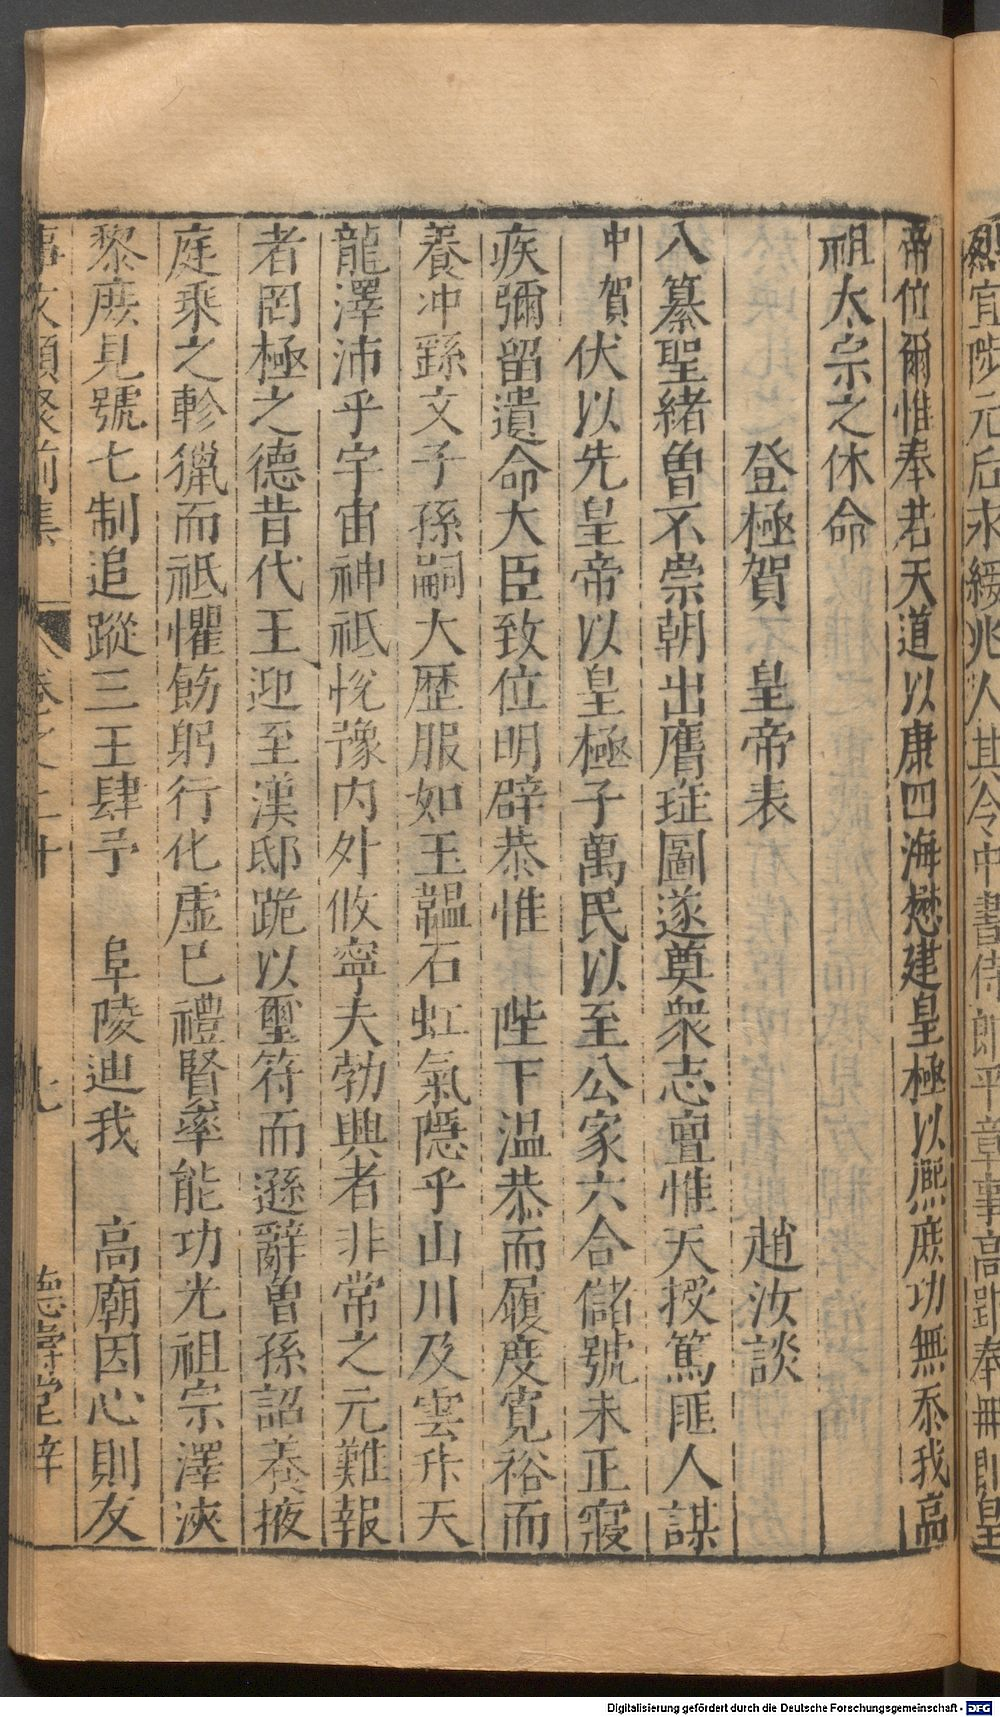 烈宜陟元后永綏兆人其令中書侍郎平章事高郢奉冊卽皇
帝位爾惟奉若天道以康四海懋建皇極以熈庶功無忝我高
祖太宗之休命
登極賀　皇帝表　　　　　　趙汝談
入纂聖緒曾不崇朝出膺珽圖遂奠衆志亶惟天授篤匪人謀
中賀伏以先皇帝以皇極子萬民以至公家六合儲號未正寢
疾彌留遺命大臣致位明辟恭惟　陛下温恭而履度寛裕而
養冲繇文子孫嗣大歴服如玉韞石虹氣隱乎山川及雲升天
龍澤沛乎宇宙神祇悅豫内外攸寧夫勃興者非常之元難報
者罔極之德昔代王迎至漢邸跪以璽符而遜辭曽孫詔養掖
庭乘之軫獵而祗懼飭躬行化虛已禮賢率能功光祖宗澤浹
黎庶見號七制追蹤三王肆予　阜陵迪我　高廟因心則友
事文類聚前集　卷之二十　九　德壽堂梓
Digitalisierung gefördert durch die Deutsche Forschungsgemeinschaft - DFG